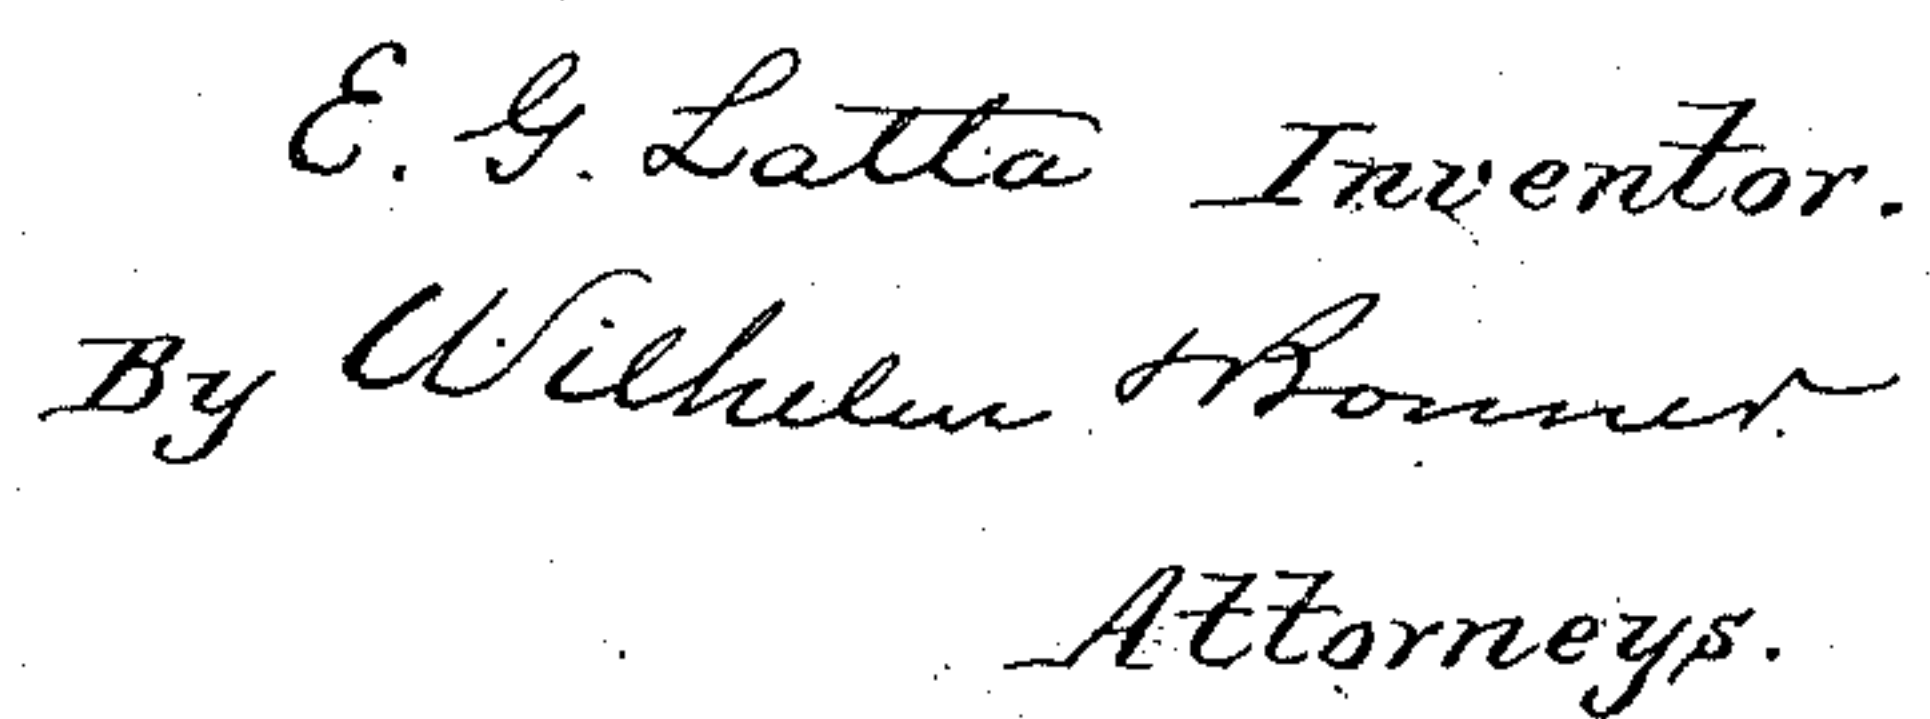 E. G. Latta Inventor.
By Wilhelm & Bonner.
Attorneys.